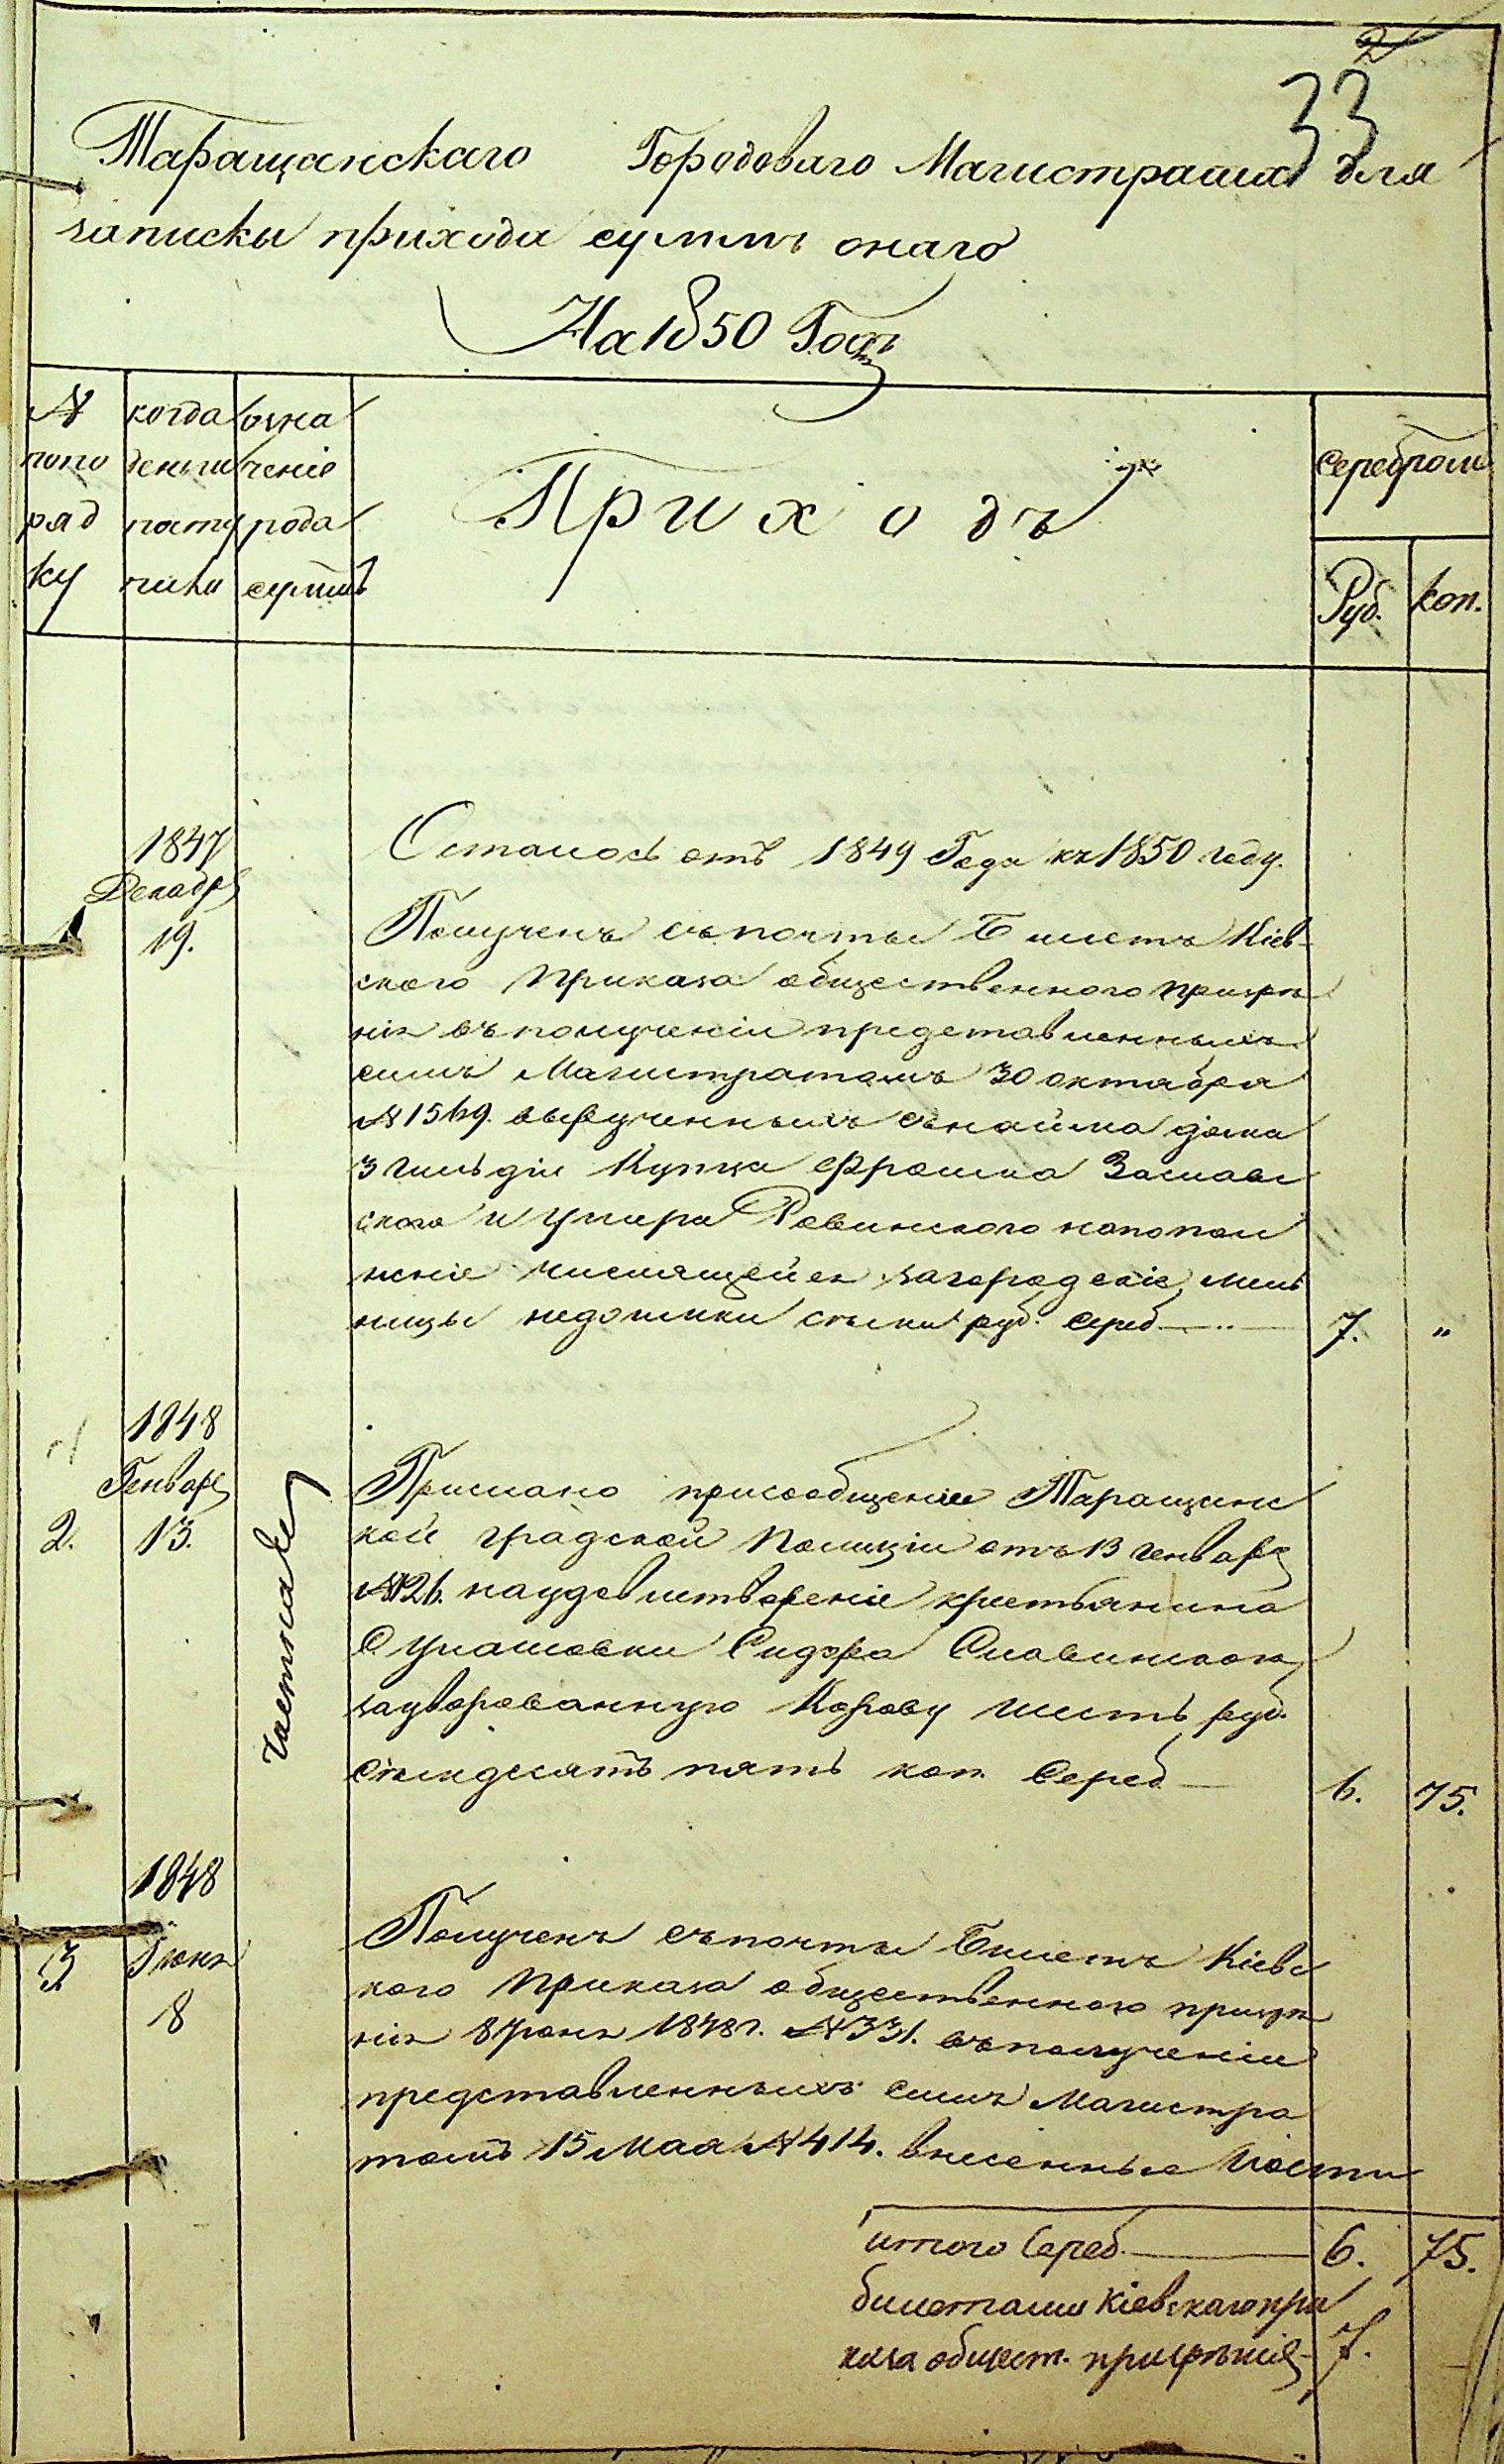 2
33
Таращанскаго Городоваго Магистрата для
записки прихода суммъ онаго
На 1850 Годъ
№ попорядку
когда деньги поступили
означеніе рода суммъ
Приходъ
Серебромъ
Руб. коп.
Осталось отъ 1849 Года къ 1850 году.
1847
Декабря
1 19.
Полученъ съ почты Билетъ Кіев-
ского Приказа общественного призрѣ
нія въ полученіи представленныхъ
симъ Магистратомъ 30 октября
№ 1569. вырученныхъ съ найма дома
3 гильдіи Купца Заслав
ского и Ровинского на пополн
неніе числящейся за городскіе мель
ницы недоимки семь руб. Сереб. 7. "
1848
Генваря
2. 13.
частная
Прислано при сообщеніи Таращанс
кой градской Полиціи отъ 13 генваря
№ 126. на удовлетвореніе крестьянина
С. Улашовки Сидора Славинского
за уворованную Корову шесть руб.
семьдесятъ пять коп. Сереб 6. 75.
1848
3 Іюня
8
Полученъ съ почты Билетъ Кіевс
кого Приказа общественного призрѣ
нія 8 Іюня 1848 г. № 331. въ полученіи
представленныхъ симъ Магистра
томъ 15 Мая № 414. внесенные
итого Сереб. 6. 75.
билетами Кіевскаго при
каза общест. призрѣнія 7.